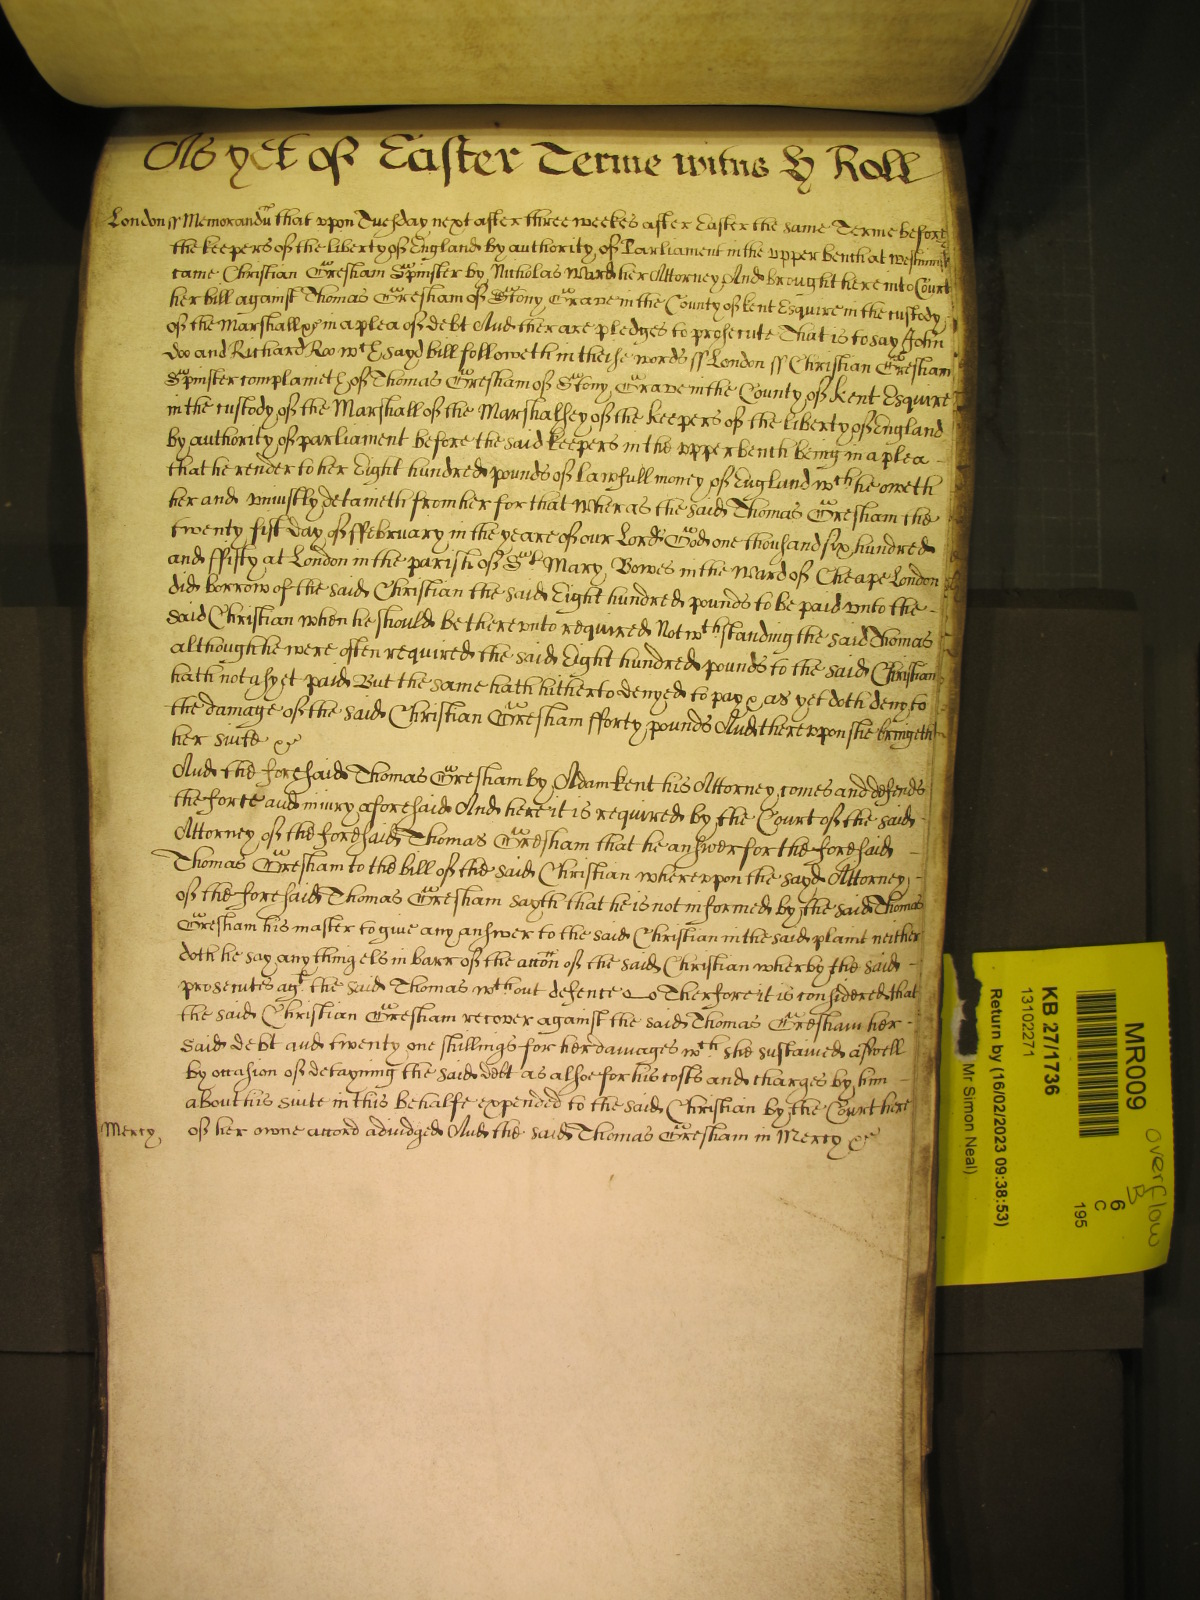 As yet of Easter Terme witnes H Roll
London ss Memorandu that vpon Tuesday next after three weekes after Easter the same Terme before
the keepers of the liberty of England by authority of Parliament in the vpper bench at Westminster
came Christian Gresham Spinster by Nicholas Ward her Attorney And brought here into Court
her bill against Thomas Gresham of Stony Grave in the County of kent Esquire in the custody
of the Marshall &c in a plea of debt And ther are pledges to prosecute That is to say John
Doo and Richard Roo wch sayd bill followeth in theise words ss London ss Christian Gresham
Spinster complaineth of Thomas Gresham of Stony Grave in the County of kent Esquire
in the custody of the Marshall of the Marshalsey of the keepers of the liberty of England
by authority of parliament before the said keepers in the vpper bench being in a plea
that he render to her Eight hundred pounds of lawfull money of England wch he oweth
her and vniustly detaineth from her for that Wheras the said Thomas Gresham the
twenty fist day of ffebruary in the yeare of our Lord God one thousand six hundred
and ffifty at London in the parish of St Mary Bowes in the Ward of Cheape London
did borrow of the said Christian the said Eight hundred pounds to be paid vnto the
said Christian when he should be therevnto required Notwthstanding the said Thomas
although he were often required the said Eight hundred pounds to the said Christian
hath not as yet paid But the same hath hitherto denyed to pay & as yet doth deny to
the damage of the said Christian Gresham fforty pounds And therevpon she bringeth
her suite &c
And the foresaid Thomas Gresham by Adam kent his Attorney comes and defends
the force and iniury aforesaid And here it is required by the Court of the said
Attorney of the foresaid Thomas Gresham that he answer for the foresaid
Thomas Gresham to the bill of the said Christian wherevpon the sayd Attorney
of the foresaid Thomas Gresham sayth that he is not informed by the said Thomas
Gresham his master to give any answer to the said Christian in the said plaint neither
doth he say any thing els in barr of the accon of the said Christian wherby the said
prosecutes agt the said Thomas wthout defence Therfore it is considered that
the said Christian Gresham recover against the said Thomas Gresham her
said debt and twenty one shillings for her damages wch she sustained aswell
by occasion of detayning the said debt as alsoe for his costs and charges by him
about his suite in this behalfe expended to the said Christian by the Court here
Mercy of her owne accord adiudged And the said Thomas Gresham in Mercy &c
MR009
KB 27/1736
13102271
Return by (16/02/2023 09:38:53)
Mr Simon Neal)
6
C
195
overflow
B